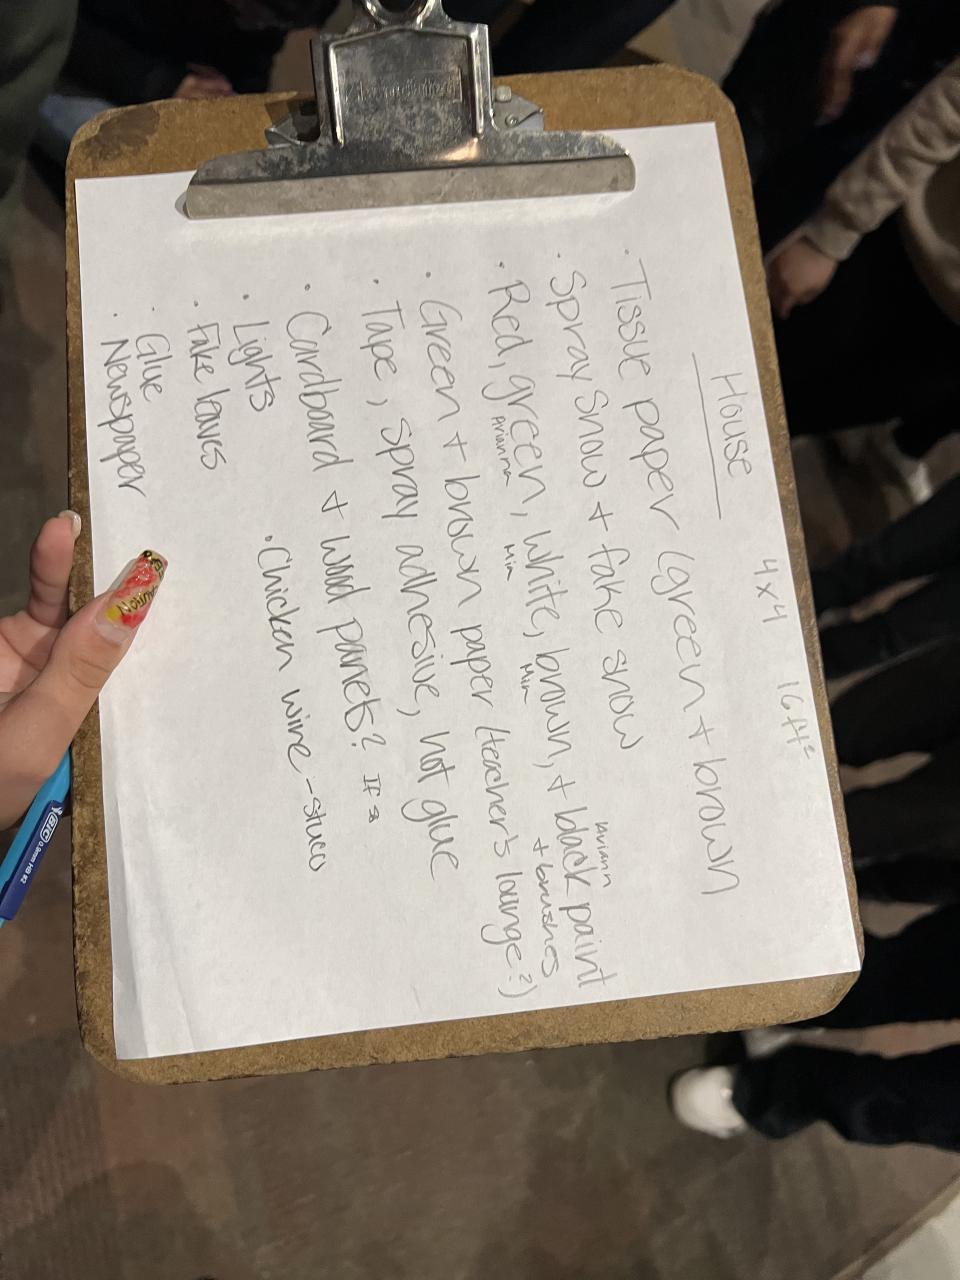 4 x 4 16 ft²
House
· Tissue paper (green + brown
· Spray snow + fake snow
· Red, green, white, brown, + black paint
Arianna Mia Mia + brushes
· Green + brown paper (teacher's lounge?)
· Tape, spray adhesive, hot glue
· Cardboard + wood panels?
· Lights
· Chicken wire - stuco
· Fake leaves
· Glue
· Newspaper
BIC 0.9mm HB #2